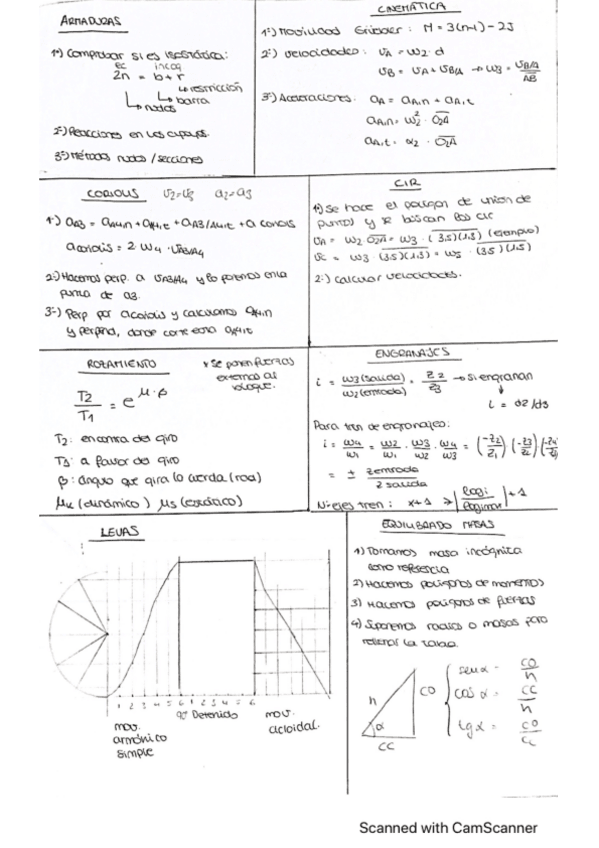 ARMADURAS
1º) Comprobar si es isostática:
ec incog
2n = b + r
↳ restricción
↳ barra
↳ nudos
2º) Reacciones en los apoyos.
3º) Método nudos / secciones
CINEMÁTICA
1º) Movilidad Grübler: M = 3(n-1) - 2J
2º) Velocidades: VA = ω2 · d
VB = VA + VB/A → ω3 = VB/A / AB
3º) Aceleraciones: aA = aA,n + aA,t
aA,n = ω2² · O2A
aA,t = α2 · O2A
CORIOLIS V2=V3 a2=a3
1º) aA3 = aA4,n + aA4,t + aA3/A4,t + a coriolis
acoriolis = 2 ω4 · VA3/A4
2º) Hacemos perp. a VA3/A4 y lo ponemos en la
punta de a3.
3º) Perp por acoriolis y calculamos aA4,n
y perpend, donde corte está aA4,t
CIR
1º) Se hace el polígono de unión de
puntos y se buscan los CIR
VA = ω2 O2A = ω3 · (3,5)(1,3) (ejemplo)
VC = ω3 · (3,5)(1,3) = ω5 · (3,5)(1,5)
2º) Calcular velocidades.
ROZAMIENTO
* Se ponen fuerzas
externas al
bloque.
T2 / T1 = e^μ·β
T2: en contra del giro
T1: a favor del giro
β: ángulo que gira la cuerda (rad)
μk (dinámico) μs (estático)
ENGRANAJES
i = ω3 (salida) / ω2 (entrada) = Z2 / Z3 → si engranan
↓
i = d2/d3
Para tren de engranajes:
i = ω4/ω1 = ω2/ω1 · ω3/ω2 · ω4/ω3 = (-Z2/Z1) (-Z3/Z2) (-Z4/Z3)
= ± Zentrada / Zsalida
Nº ejes tren: x+1 → |log i / log imax| + 1
LEVAS
1 2 3 4 5 6 1 2 3 4 5 6
mov.
armónico
simple
90º Detenido
mov.
cicloidal.
EQUILIBRADO MASAS
1) Tomamos masa incógnita
como referencia
2) Hacemos polígonos de momentos
3) Hacemos polígonos de fuerzas
4) Suponemos radios o masas para
rellenar la tabla.
h
CO
α
CC
sen α = CO / h
cos α = CC / h
tg α = CO / CC
Scanned with CamScanner